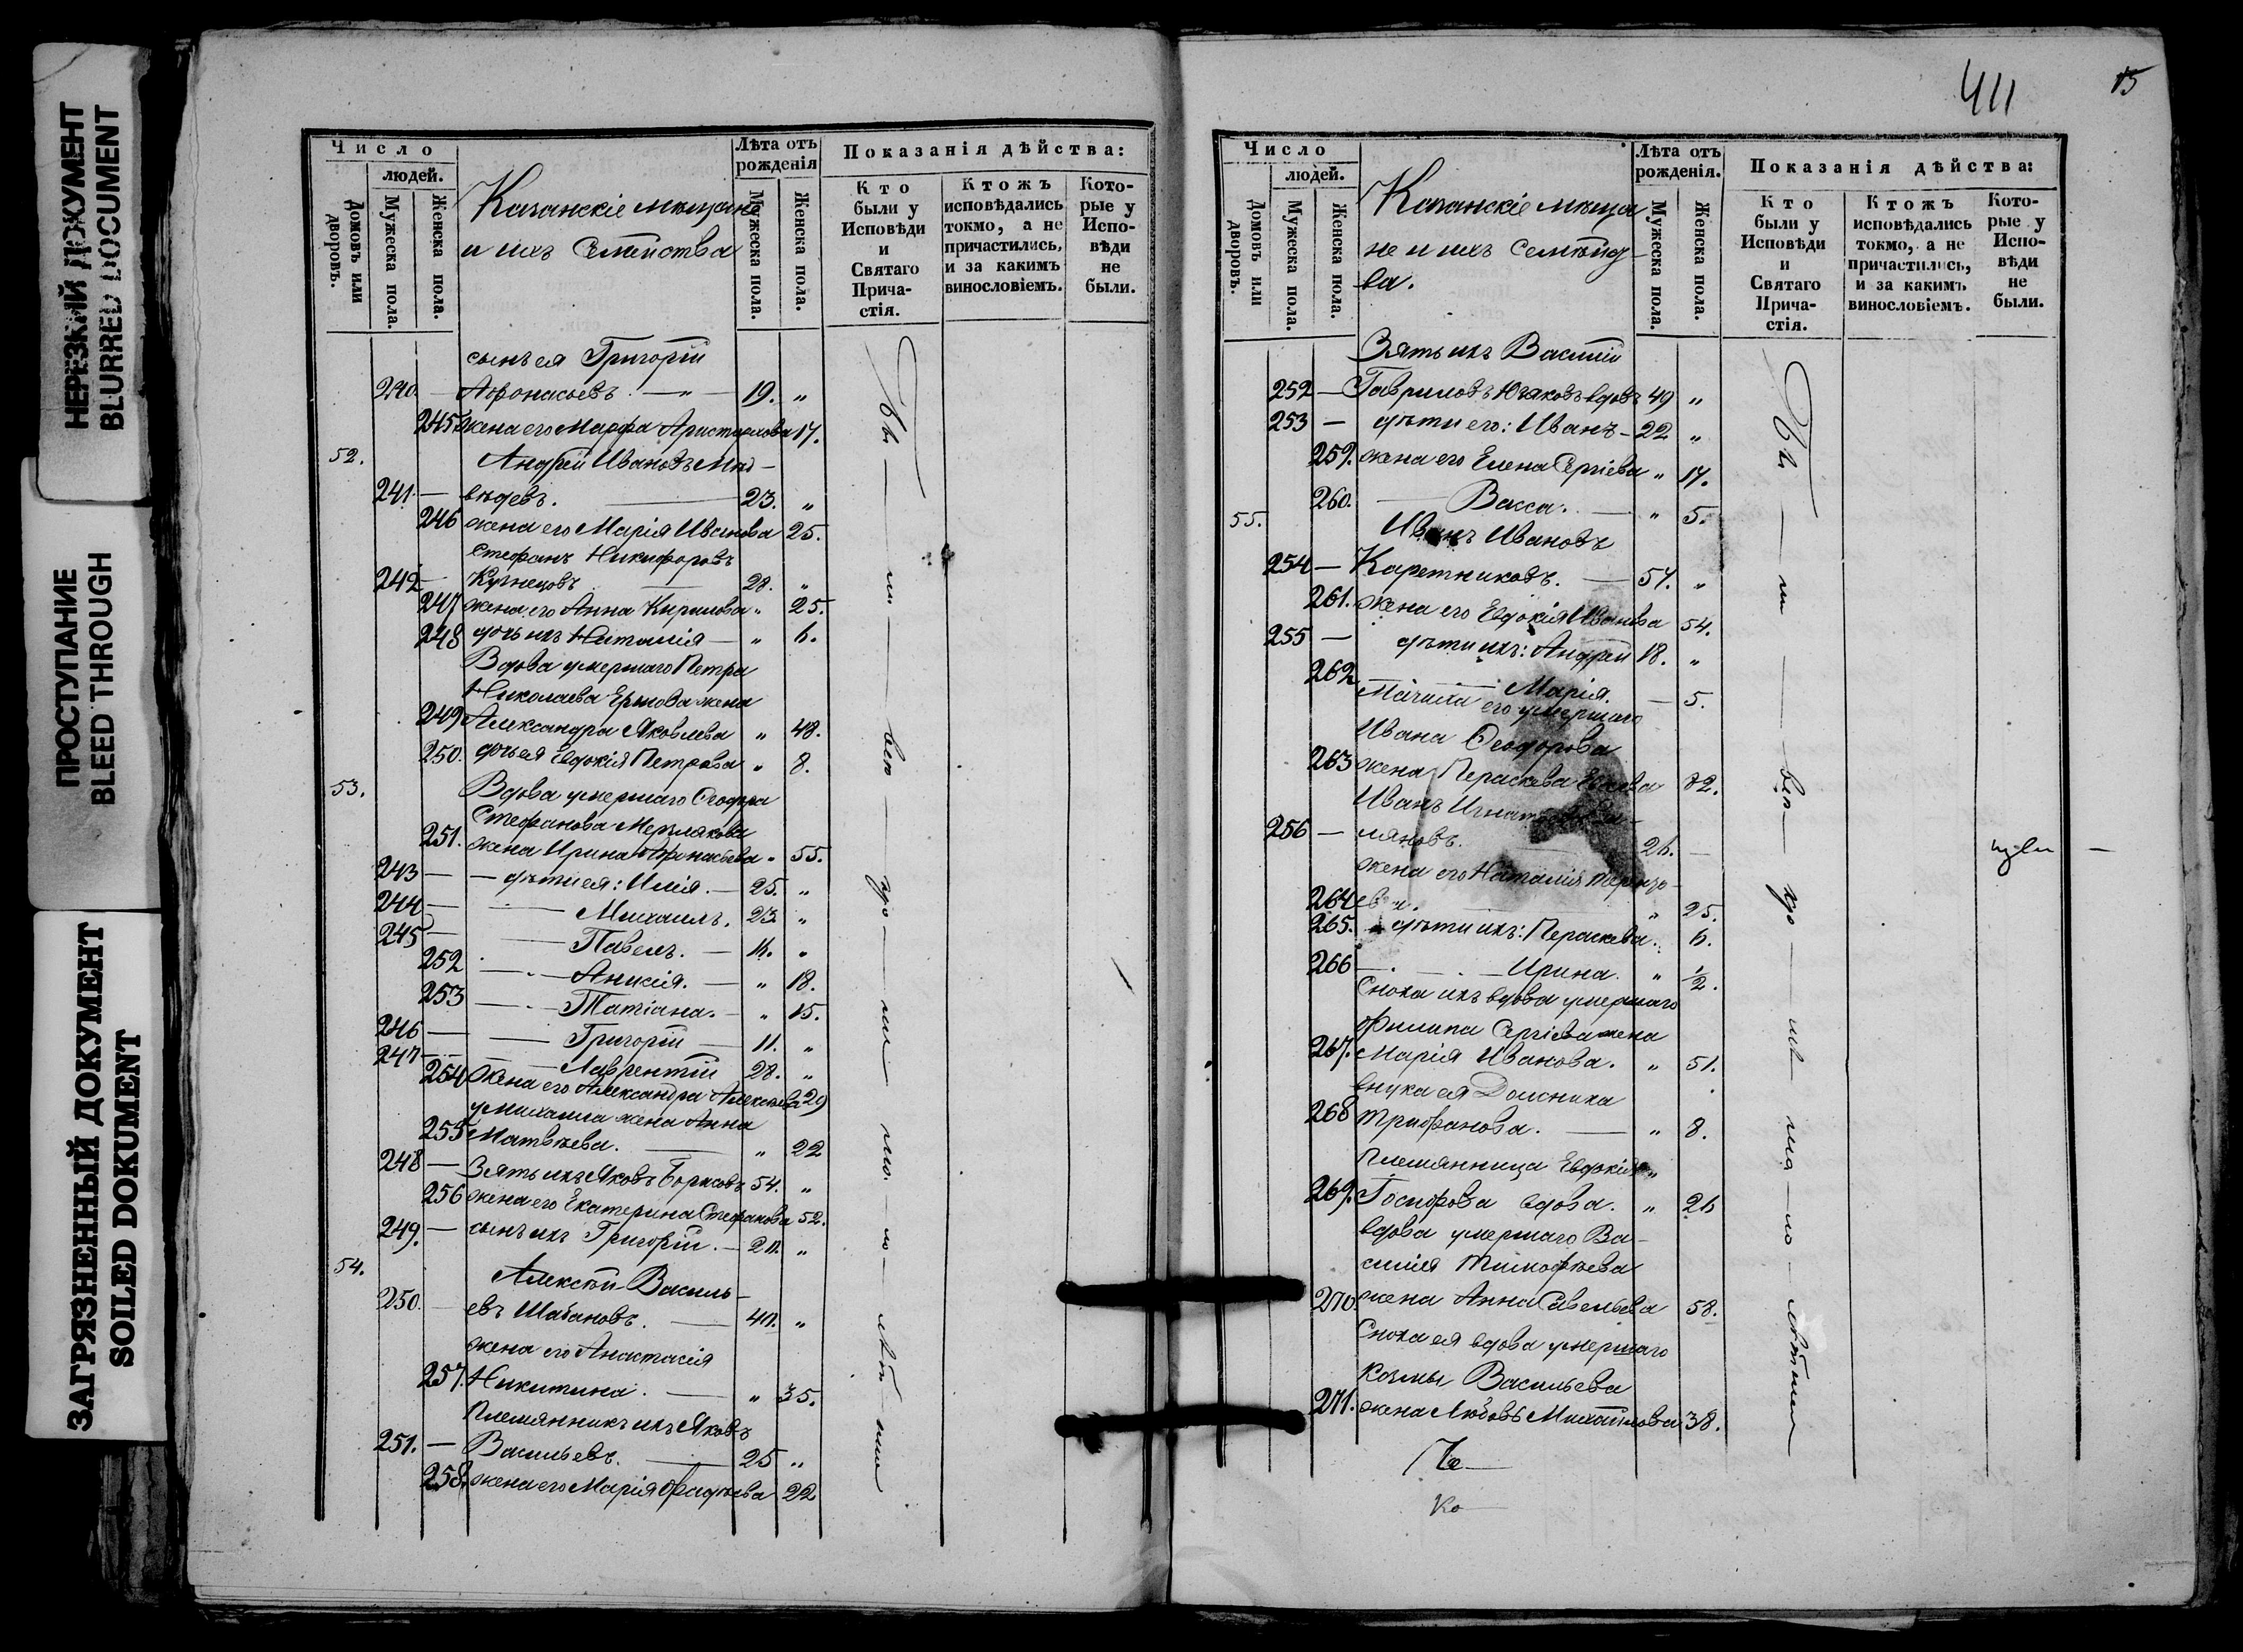 НЕРЕЗКИЙ ДОКУМЕНТ
BLURRED DOCUMENT
ПРОСТУПАНИЕ
BLEED THROUGH
ЗАГРЯЗНЕННЫЙ ДОКУМЕНТ
SOILED DOKUMENT
Число
людей.
Домовъ или дворовъ.
Мужеска пола.
Женска пола.
Казанскіе мѣщане
и ихъ Семейства
Лѣта отъ рожденія
Мужеска пола.
Женска пола.
Показанія дѣйства:
Кто были у Исповѣди и Святаго Причастія.
Ктожъ исповѣдались токмо, а не причастились, и за какимъ винословіемъ.
Которые у Исповѣди не были.
сынъ ея Григорій
240. — Афонасьевъ — " — 19. "
245. жена его Марфа Аристархова 17.
52. Андрей Ивановъ Мед-
241. — вѣдевъ. — 23. "
246 жена его Марія Иванова 25.
Стефанъ Никифоровъ
242 — Кузнецовъ — 28. "
247 жена его Анна Кирилова " 25.
248 дочь ихъ Наталія — " 6.
Вдова умершаго Петра
Николаева жена
249 Александра Яковлева " 48.
250. дочь ея Евдокія Петрова " 8.
53. Вдова умершаго Ѳеодора
Стефанова Мерзлякова
251. жена Ирина Афонасьева " 55.
243 — дѣти ея: Илія. — 25. "
244 — Михаилъ. 23. "
245 — Павелъ. — 14. "
252 — Анисія. — " 18.
253 — Татіана. — " 15.
246 — Григорій — 11. "
247 — Лаврентій 28. "
254 жена его Александра Алексѣева 29
у Михаила жена Анна
255 Матвѣева. — " 22
248 — Зять ихъ Яковъ Борисовъ 54. "
256 жена его Екатерина Стефанова 52.
249. — сынъ ихъ Григорій. — 20. "
54. Алексѣй Василь-
250. — евъ Шабановъ. — 40. "
жена его Анастасія
257. Никитина. — " 35.
Племянникъ ихъ Яковъ
251. — Васильевъ. — 25 "
258. жена его Марія Фадѣева 22
411
15
Число
людей.
Домовъ или дворовъ.
Мужеска пола.
Женска пола.
Казанскіе мѣща
не и ихъ Семейст-
ва.
Лѣта отъ рожденія.
Мужеска пола.
Женска пола.
Показанія дѣйства:
Кто были у Исповѣди и Святаго Причастія.
Ктожъ исповѣдались токмо, а не причастились, и за какимъ винословіемъ.
Которые у Исповѣди не были.
Зять ихъ Василій
252 — Гавриловъ вдовъ 49 "
253 — дѣти его: Иванъ — 22 "
259. жена его Елена Сергіева " 17.
260. — Васса. — " 5.
55. Иванъ Ивановъ
254 — Каретниковъ. — 57. "
261. жена его Евдокія Иванова 54.
255 — дѣти ихъ: Андрей 18. "
262 Марія. — 5.
Мачиха его умершаго
Ивана Ѳеодорова
263 жена Пераскева 82.
Иванъ
256 — ляновъ. 26. —
жена его Наталія
264 ева. " 25.
265. — дѣти ихъ: Пераскева. 6.
266 — Ирина. " 1/2.
Сноха ихъ вдова умершаго
Филипа Сергіева жена
267. Марія Иванова. " 51.
внука ея Домника
268 Трифанова. — " 8.
Племянница Евдокія "
269. вдова. " 26
вдова умершаго Ва-
силія Тимофѣева
270 жена Анна Савельева 58.
Сноха ея вдова умершаго
Козмы Васильева
271. жена Любовь Михаилова 38.